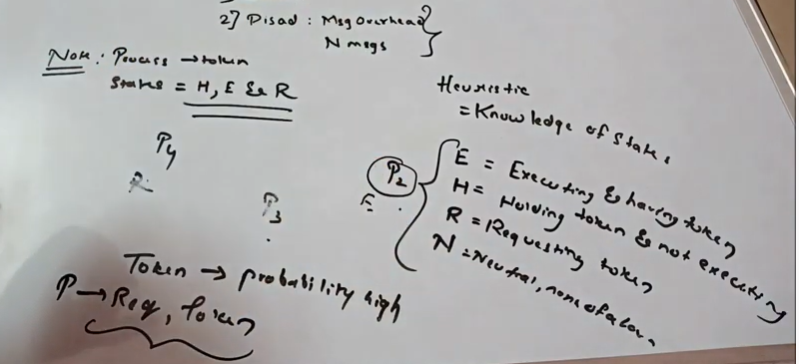 2) Disad : Msg overhead
N msgs
Note : Process → token
States = H, E & R
Heuristic
= Knowledge of state.
P4
R
P3
P2
E
E = Executing & having token
H = Holding token & not executing
R = Requesting token
N = Neutral, none of above.
Token → probability high
P → Req, Token